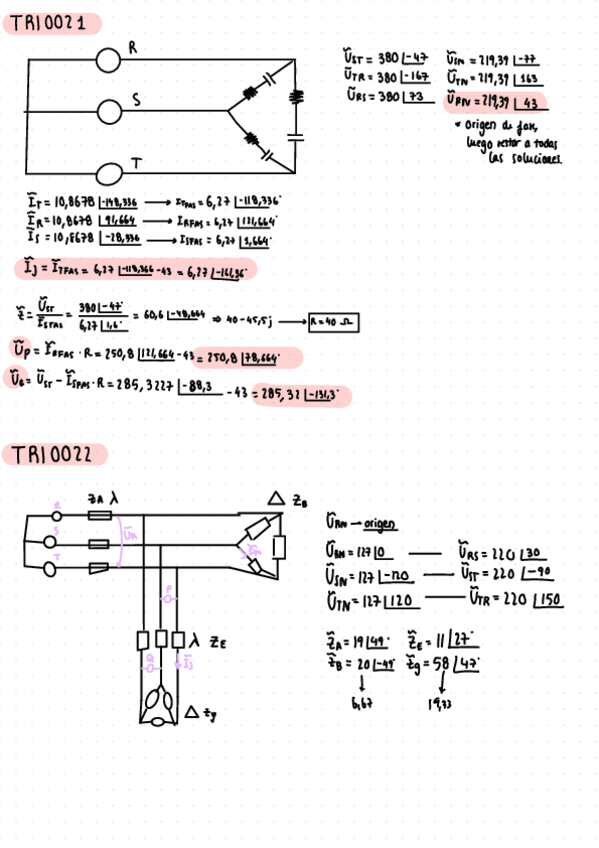 TRI0021
R
S
T
ŨST = 380 |-47
ŨTR = 380 |-167
ŨRS = 380 |73
ŨSN = 219,39 |-77
ŨTN = 219,39 |163
ŨRN = 219,39 |43
* origen de fase,
luego restar a todas
las soluciones.
ĨT = 10,8678 |-148,336 → ITFAS = 6,27 |-118,336°
ĨR = 10,8678 |91,664 → IRFAS = 6,27 |121,664°
ĨS = 10,8678 |-28,336 → ISFAS = 6,27 |1,664°
Ĩj = ĨTFAS = 6,27 |-118,366 -43 = 6,27 |-161,36°
Z̃ = ŨST / ĨSFAS = 380 |-47° / 6,27 |1,6° = 60,6 |-48,664 ⇒ 40-45,5j → R = 40 Ω
Ũp = ĨRFAS · R = 250,8 |121,664 -43 = 250,8 |78,664°
Ũ = ŨST - ĨSFAS · R = 285,3227 |-88,3 -43 = 285,32 |-131,3°
TRI0022
ZA λ
Δ ZB
R
S
T
P
λ ZE
Ĩj
Δ Zg
ŨRN → origen
ŨRN = 127 |0 — ŨRS = 220 |30
ŨSN = 127 |-120 — ŨST = 220 |-90
ŨTN = 127 |120 — ŨTR = 220 |150
Z̃A = 19 |49° Z̃E = 11 |27°
Z̃B = 20 |-49° Z̃g = 58 |47°
6,67 19,33